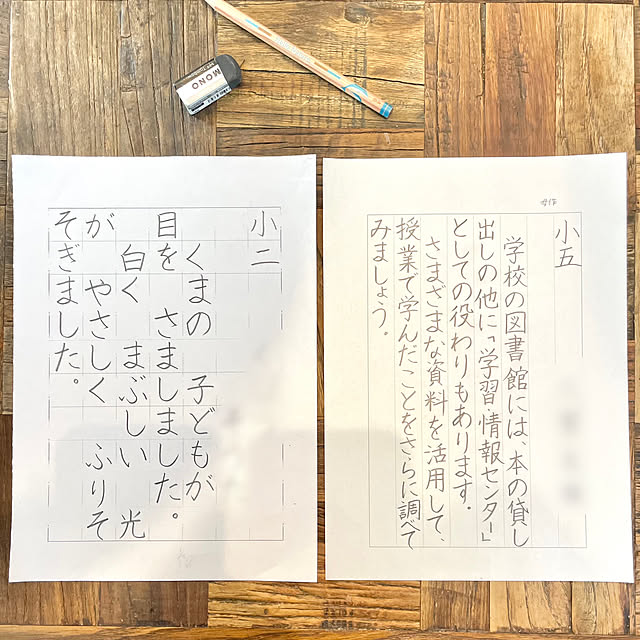 MONO
小五
学校の図書館には、本の貸し
出しの他に「学習情報センター」
としての役わりもあります。
さまざまな資料を活用して、
授業で学んだことをさらに調べて
みましょう。
小二
くまの 子どもが
目を さましました。
白く まぶしい 光
が やさしく ふりそ
そぎました。